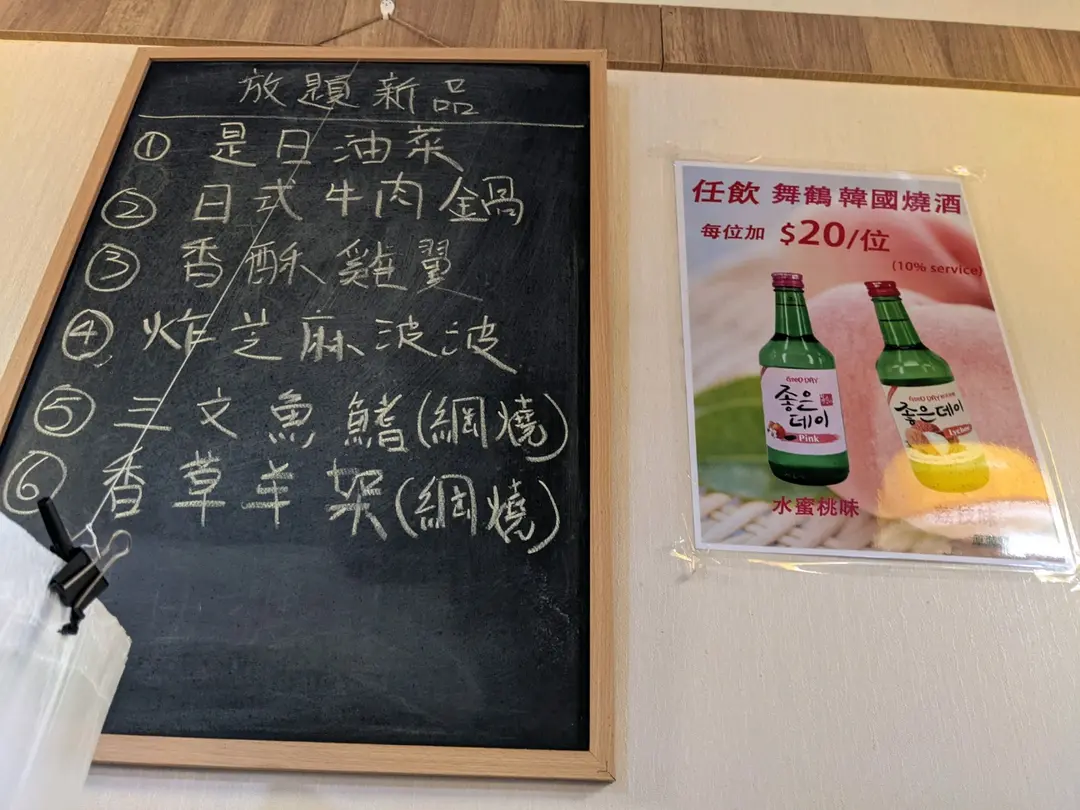 放題新品
① 是日油菜
② 日式牛肉鍋
③ 香酥雞翼
④ 炸芝麻波波
⑤ 三文魚鰭(網燒)
⑥ 香草羊架(網燒)
任飲 舞鶴韓國燒酒
每位加 $20/位
(10% service)
GOOD DAY
좋은
데이
Pink
水蜜桃味
GOOD DAY
좋은데이
Lychee
荔枝味